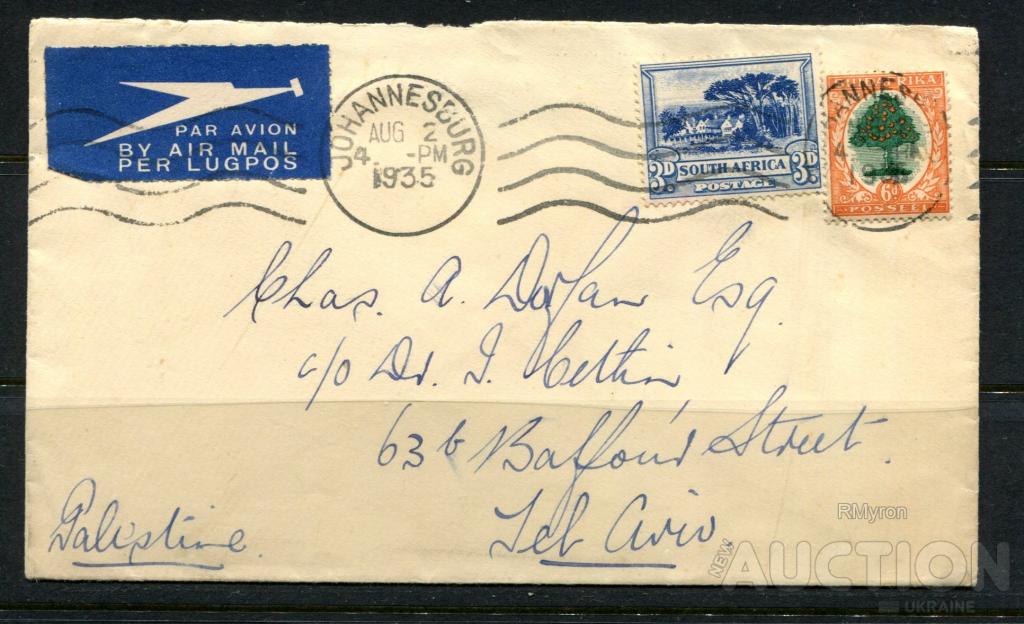 PAR AVION
BY AIR MAIL
PER LUGPOS
JOHANNESBURG
AUG 2
4. -PM
1935
3D SOUTH AFRICA 3D
POSTAGE
6d
POSSEEL
Chas. A. Esq.
c/o Dr. I.
63b Balfour Street.
Tel Aviv
Palestine.
RMyron
NEW AUCTION
UKRAINE